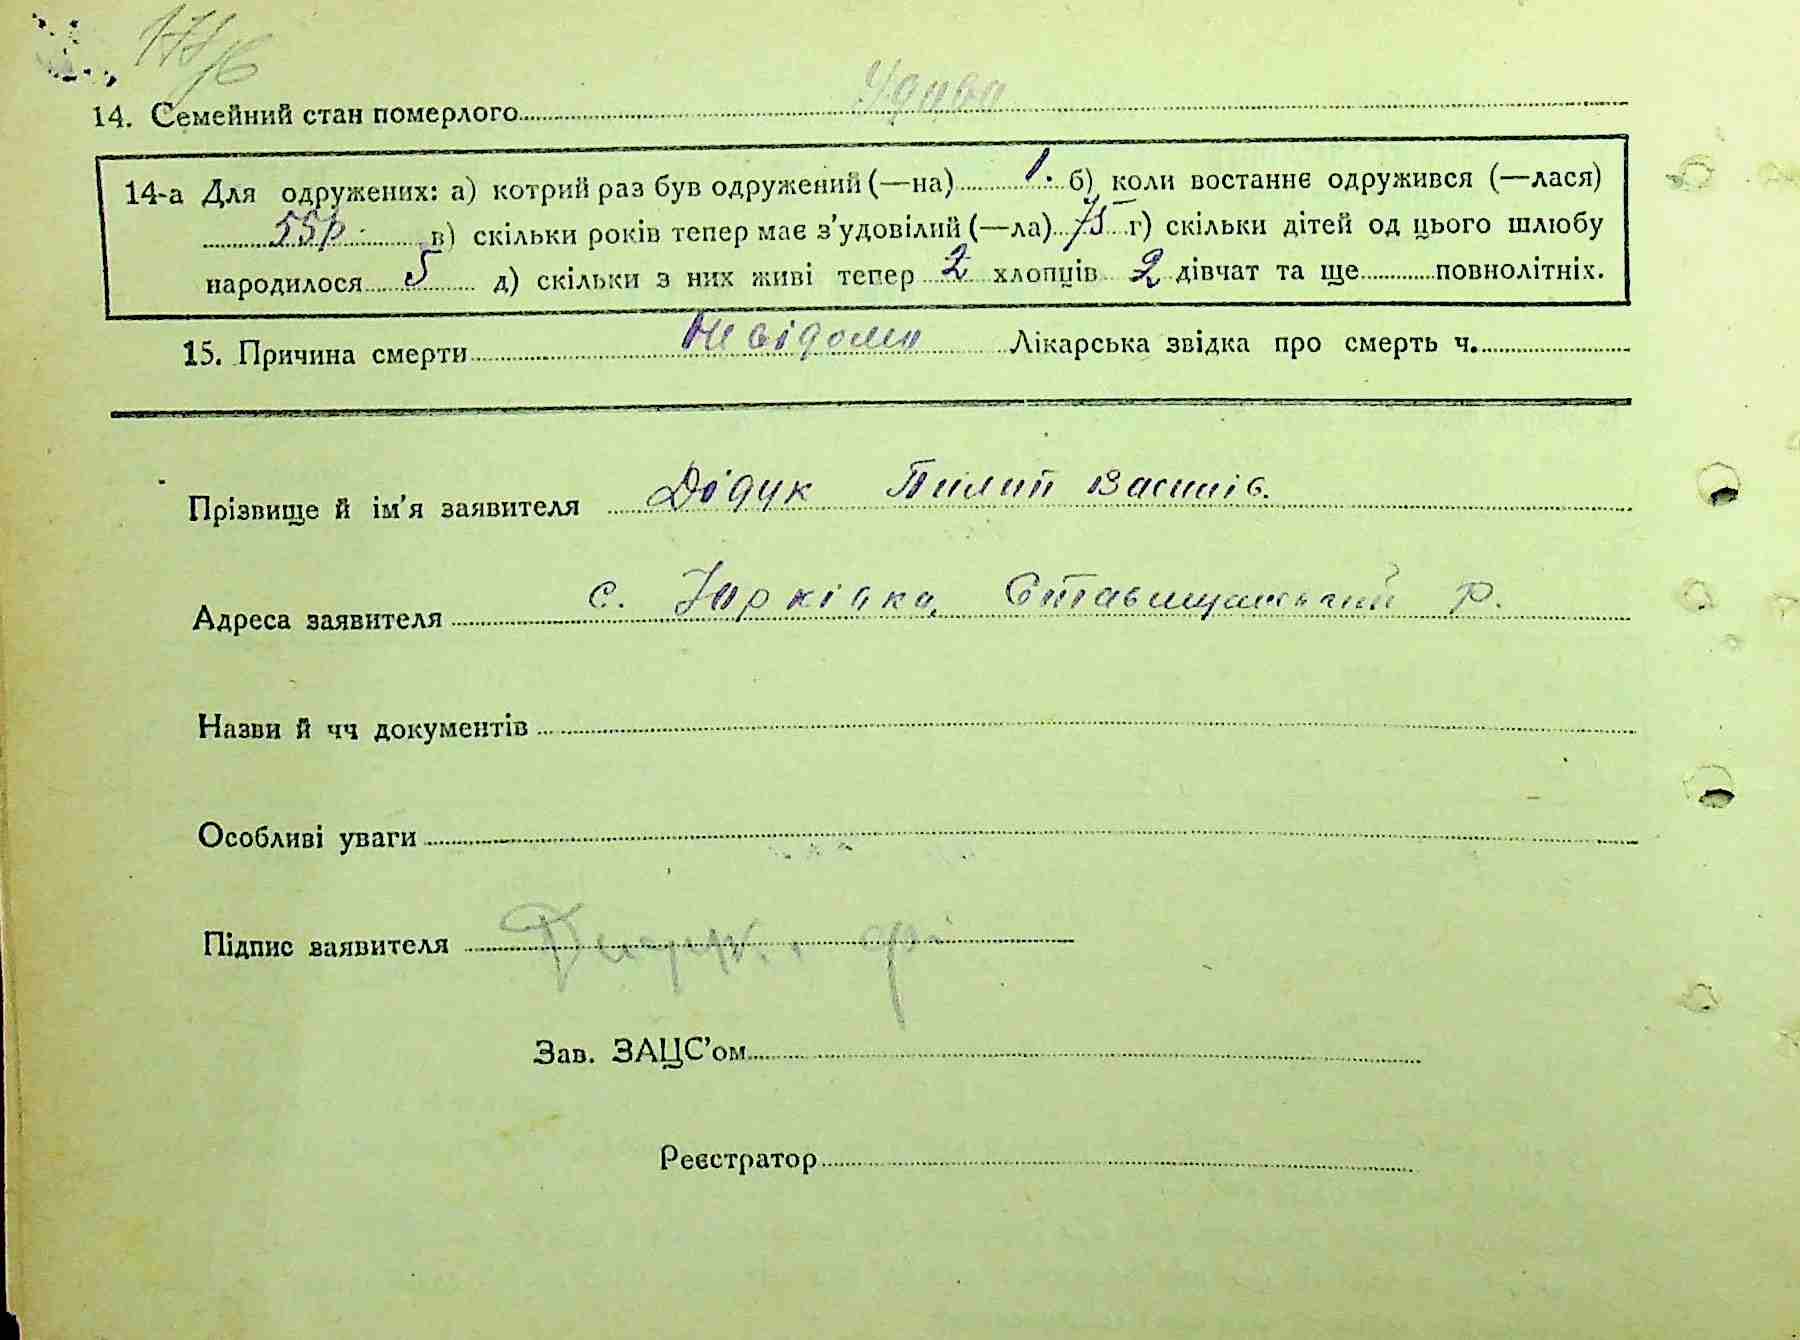 14. Семейний стан померлого Удава
14-а Для одружених: а) котрий раз був одружений (—на) 1. б) коли востаннє одружився (—лася)
55р. в) скільки років тепер має з'удовілий (—ла) 75 г) скільки дітей од цього шлюбу
народилося 5 д) скільки з них живі тепер 2 хлопців 2 дівчат та ще повнолітніх.
15. Причина смерти Невідома Лікарська звідка про смерть ч.
Прізвище й ім'я заявителя Дідук Пилип Василів.
Адреса заявителя с. Юрківка, Ставищанський р.
Назви й чч документів
Особливі уваги
Підпис заявителя
Зав. ЗАЦС'ом
Реєстратор